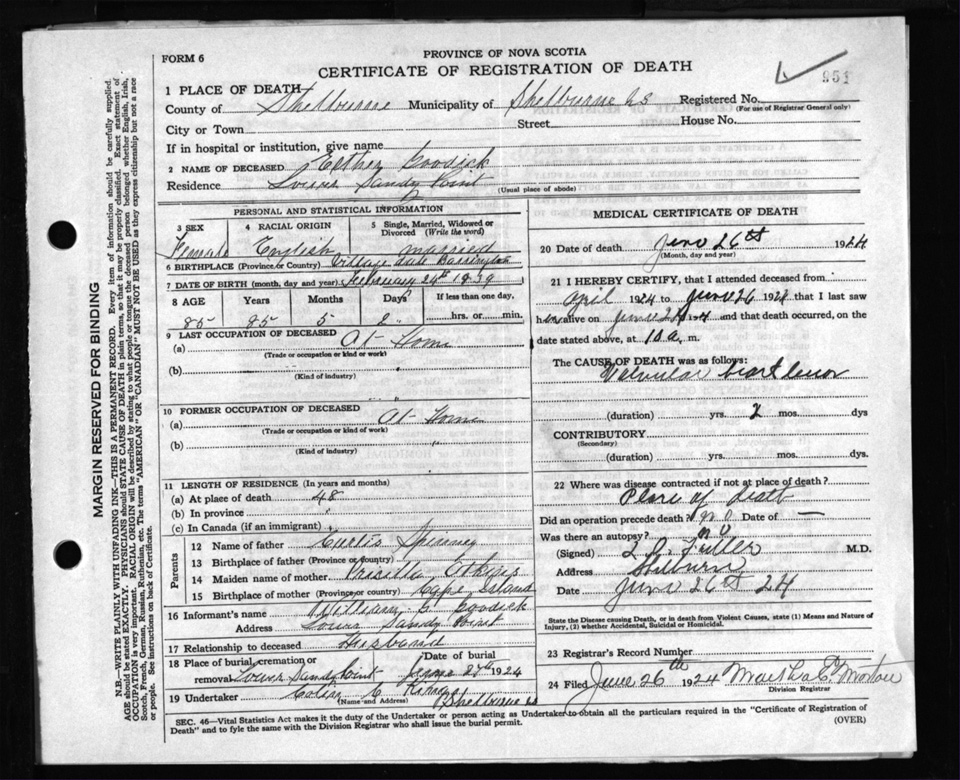 FORM 6
PROVINCE OF NOVA SCOTIA
CERTIFICATE OF REGISTRATION OF DEATH
951
1 PLACE OF DEATH—
County of Shelburne Municipality of Shelburne NS Registered No.
(For use of Registrar General only)
City or Town Street House No.
If in hospital or institution, give name
2 NAME OF DECEASED Esther Goodick
Residence Lower Sandy Point
(Usual place of abode)
PERSONAL AND STATISTICAL INFORMATION
3 SEX 4 RACIAL ORIGIN 5 Single, Married, Widowed or Divorced (Write the word)
Female English Married
6 BIRTHPLACE (Province or Country) Village dale Barrington
7 DATE OF BIRTH (month, day and year) February 24th 1839
8 AGE Years Months Days If less than one day,
85 85 5 2 hrs. or min.
9 LAST OCCUPATION OF DECEASED
(a) At Home
(Trade or occupation or kind or work)
(b) "
(Kind of industry)
10 FORMER OCCUPATION OF DECEASED
(a) At Home
(Trade or occupation or kind of work)
(b) "
(Kind of industry)
11 LENGTH OF RESIDENCE (In years and months)
(a) At place of death 48
(b) In province "
(c) In Canada (if an immigrant)
Parents
12 Name of father Curtis
13 Birthplace of father (Province or country)
14 Maiden name of mother
15 Birthplace of mother (Province or country) Cape Island
16 Informant's name William G. Goodick
Address Lower Sandy Point
17 Relationship to deceased Husband
18 Place of burial, cremation or removal Lower Sandy Point Date of burial 1924
19 Undertaker C.
(Name and Address) Shelburne NS
MEDICAL CERTIFICATE OF DEATH
20 Date of death June 26th 1924
(Month, day and year)
21 I HEREBY CERTIFY, that I attended deceased from
April 1924 to June 26 1924 that I last saw
her alive on June and that death occurred, on
the date stated above, at 10 a. m.
The CAUSE OF DEATH was as follows:
Valvular
(duration) yrs. 2 mos. dys
CONTRIBUTORY
(Secondary)
(duration) yrs. mos. dys.
22 Where was disease contracted if not at place of death?
Place of death
Did an operation precede death? no Date of —
Was there an autopsy? no
(Signed) L. O. Fuller M.D.
Address Shelburne
Date June 26th 24
State the Disease causing Death, or in death from Violent Causes, state (1) Means and Nature of Injury, (2) whether Accidental, Suicidal or Homicidal.
23 Registrar's Record Number
24 Filed June 26th 1924 Martha E. Morton
Division Registrar
SEC. 46—Vital Statistics Act makes it the duty of the Undertaker or person acting as Undertaker to obtain all the particulars required in the "Certificate of Registration of
Death" and to fyle the same with the Division Registrar who shall issue the burial permit.
(OVER)
MARGIN RESERVED FOR BINDING
N.B.—WRITE PLAINLY WITH UNFADING INK—THIS IS A PERMANENT RECORD. Every item of information should be carefully supplied.
AGE should be stated EXACTLY. PHYSICIANS should STATE CAUSE OF DEATH in plain terms, so that it may be properly classified. Exact statement of
OCCUPATION is very important. RACIAL ORIGIN will be described by stating to what people or tongue the deceased person belonged whether English, Irish,
Scotch, French, German, Russian, Ruthenian, etc. The terms "AMERICAN" OR "CANADIAN" MUST NOT BE USED as they express citizenship but not a race
or people. See instructions on back of Certificate.